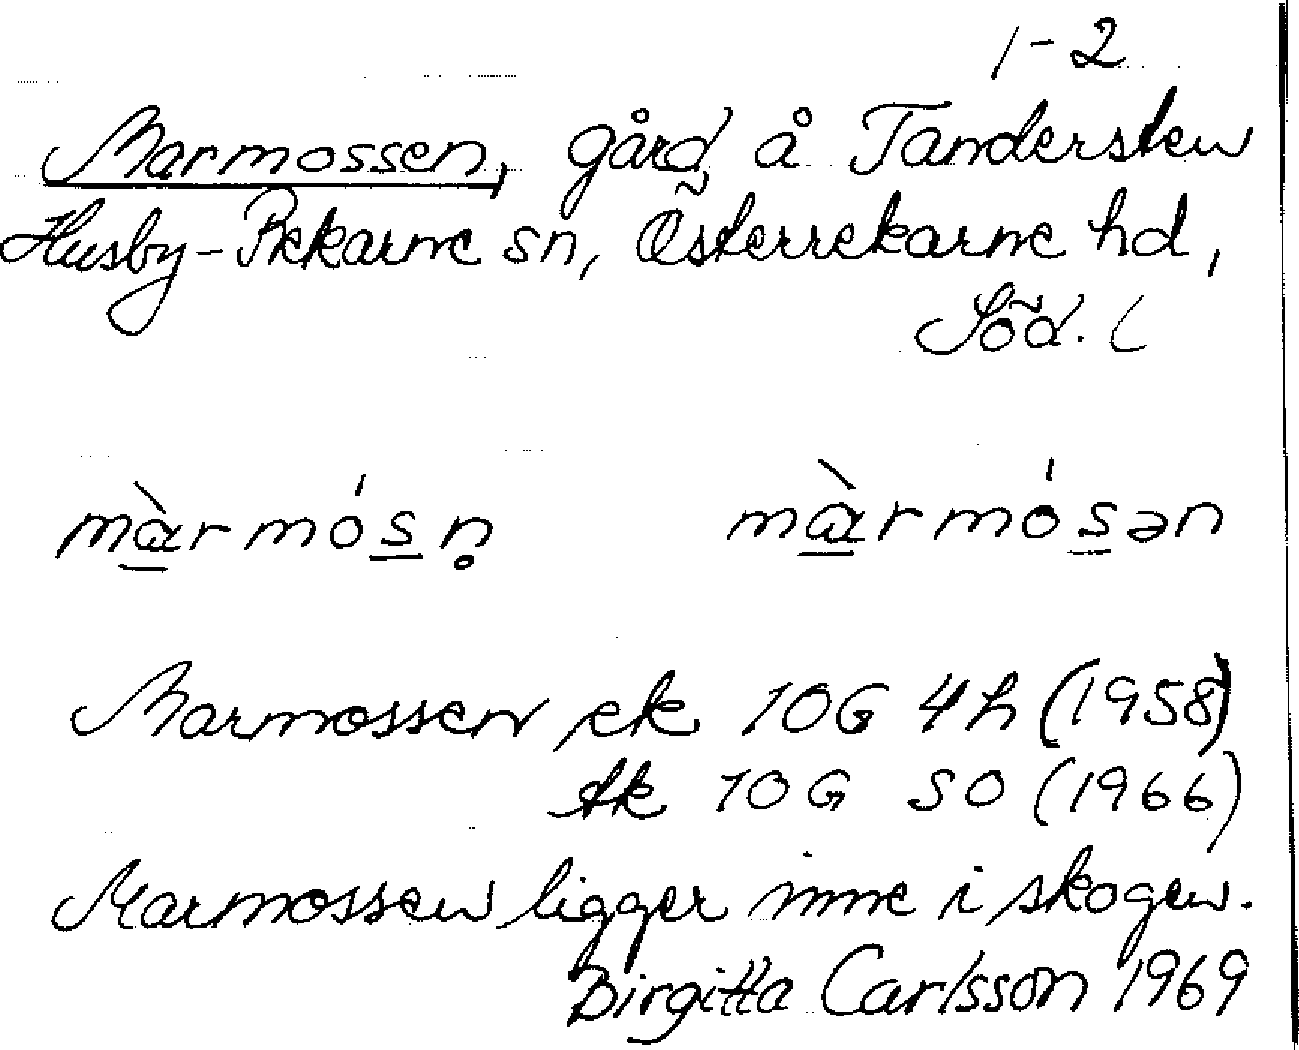 1-2
Marmossen, gård å Tandersten
Husby-Rekarne sn, Österrekarne hd,
Söd. (
màrmósn̥ màrmósən
Marmossen ek 10G 4h (1958)
tk 10G SO (1966)
Marmossen ligger inne i skogen.
Birgitta Carlsson 1969